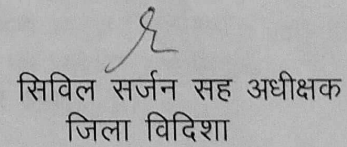 सिविल सर्जन सह अधीक्षक
जिला विदिशा